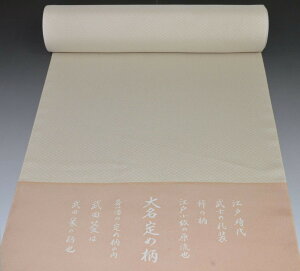 江戸時代
武士の礼装
裃の柄
江戸小紋の原流也
大名定め柄
武田菱は
武田家の柄也